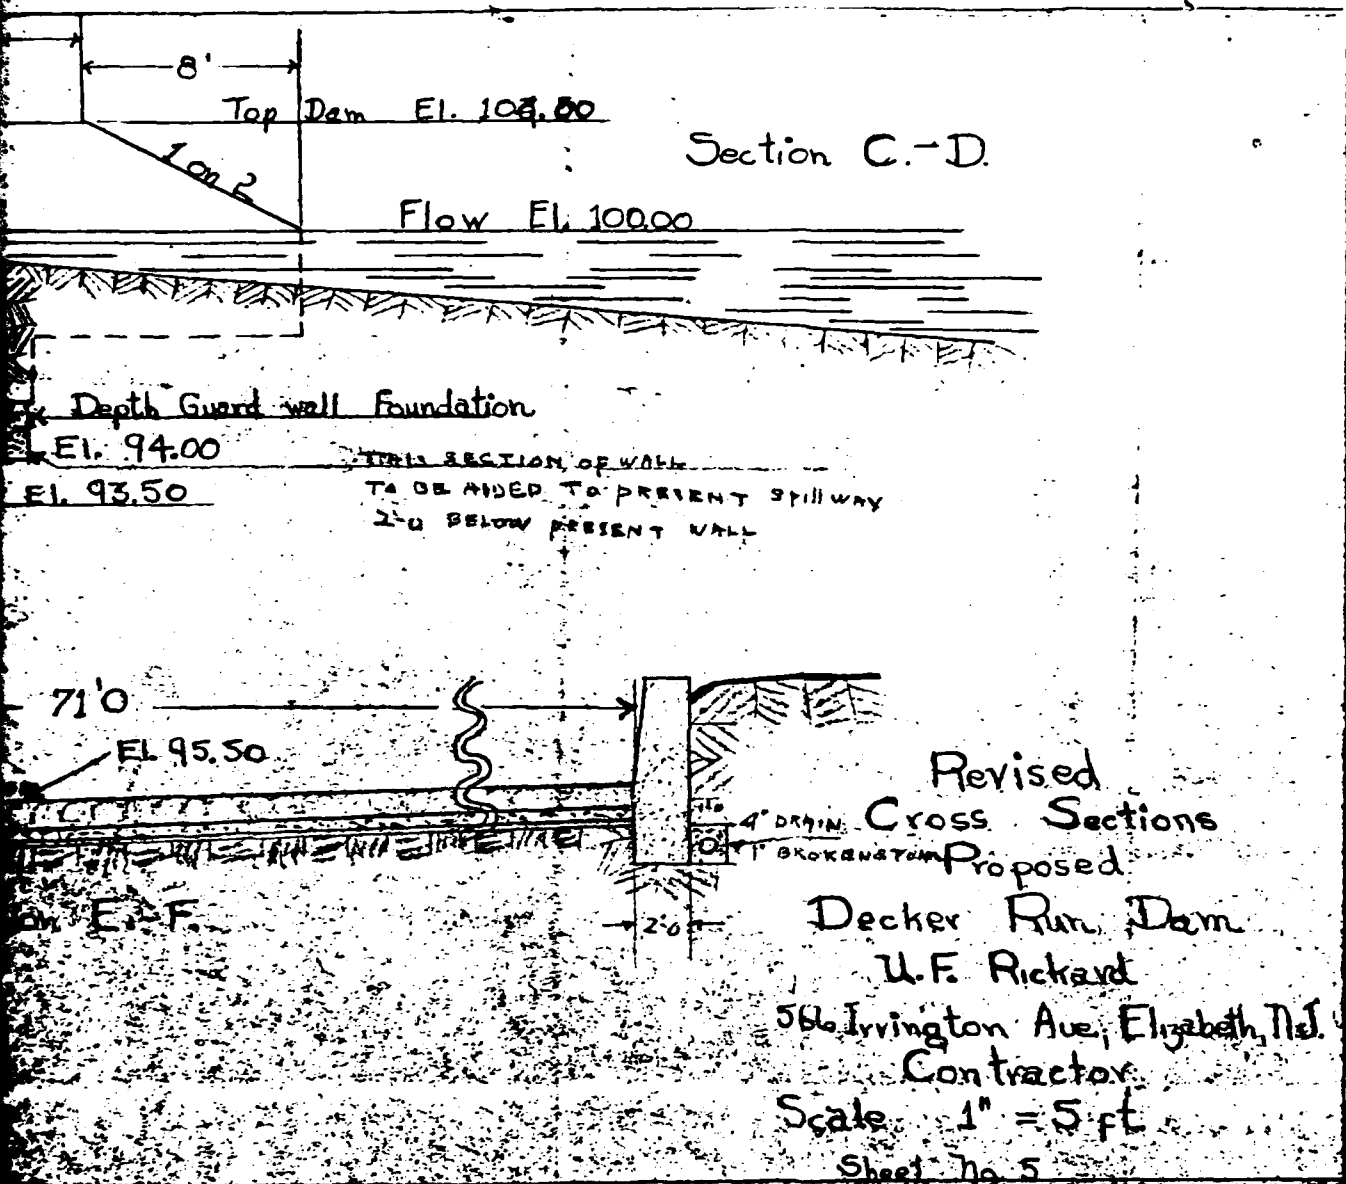 8'
Top Dam El.
Section C.-D.
1 on 2
Flow El. 100.00
Depth Guard wall Foundation
El. 94.00
El. 93.50
THIS SECTION OF WALL
TO BE ADDED TO PRESENT SpillWAY
2'-0 BELOW PRESENT WALL
71'0
El. 95.50
4" DRAIN
1" BROKENSTONE
E-F.
2'-0
Revised
Cross Sections
Proposed
Decker Run Dam
U.F. Rickard
566 Irvington Ave, Elizabeth, N.J.
Contractor
Scale 1" = 5 ft
Sheet No 5